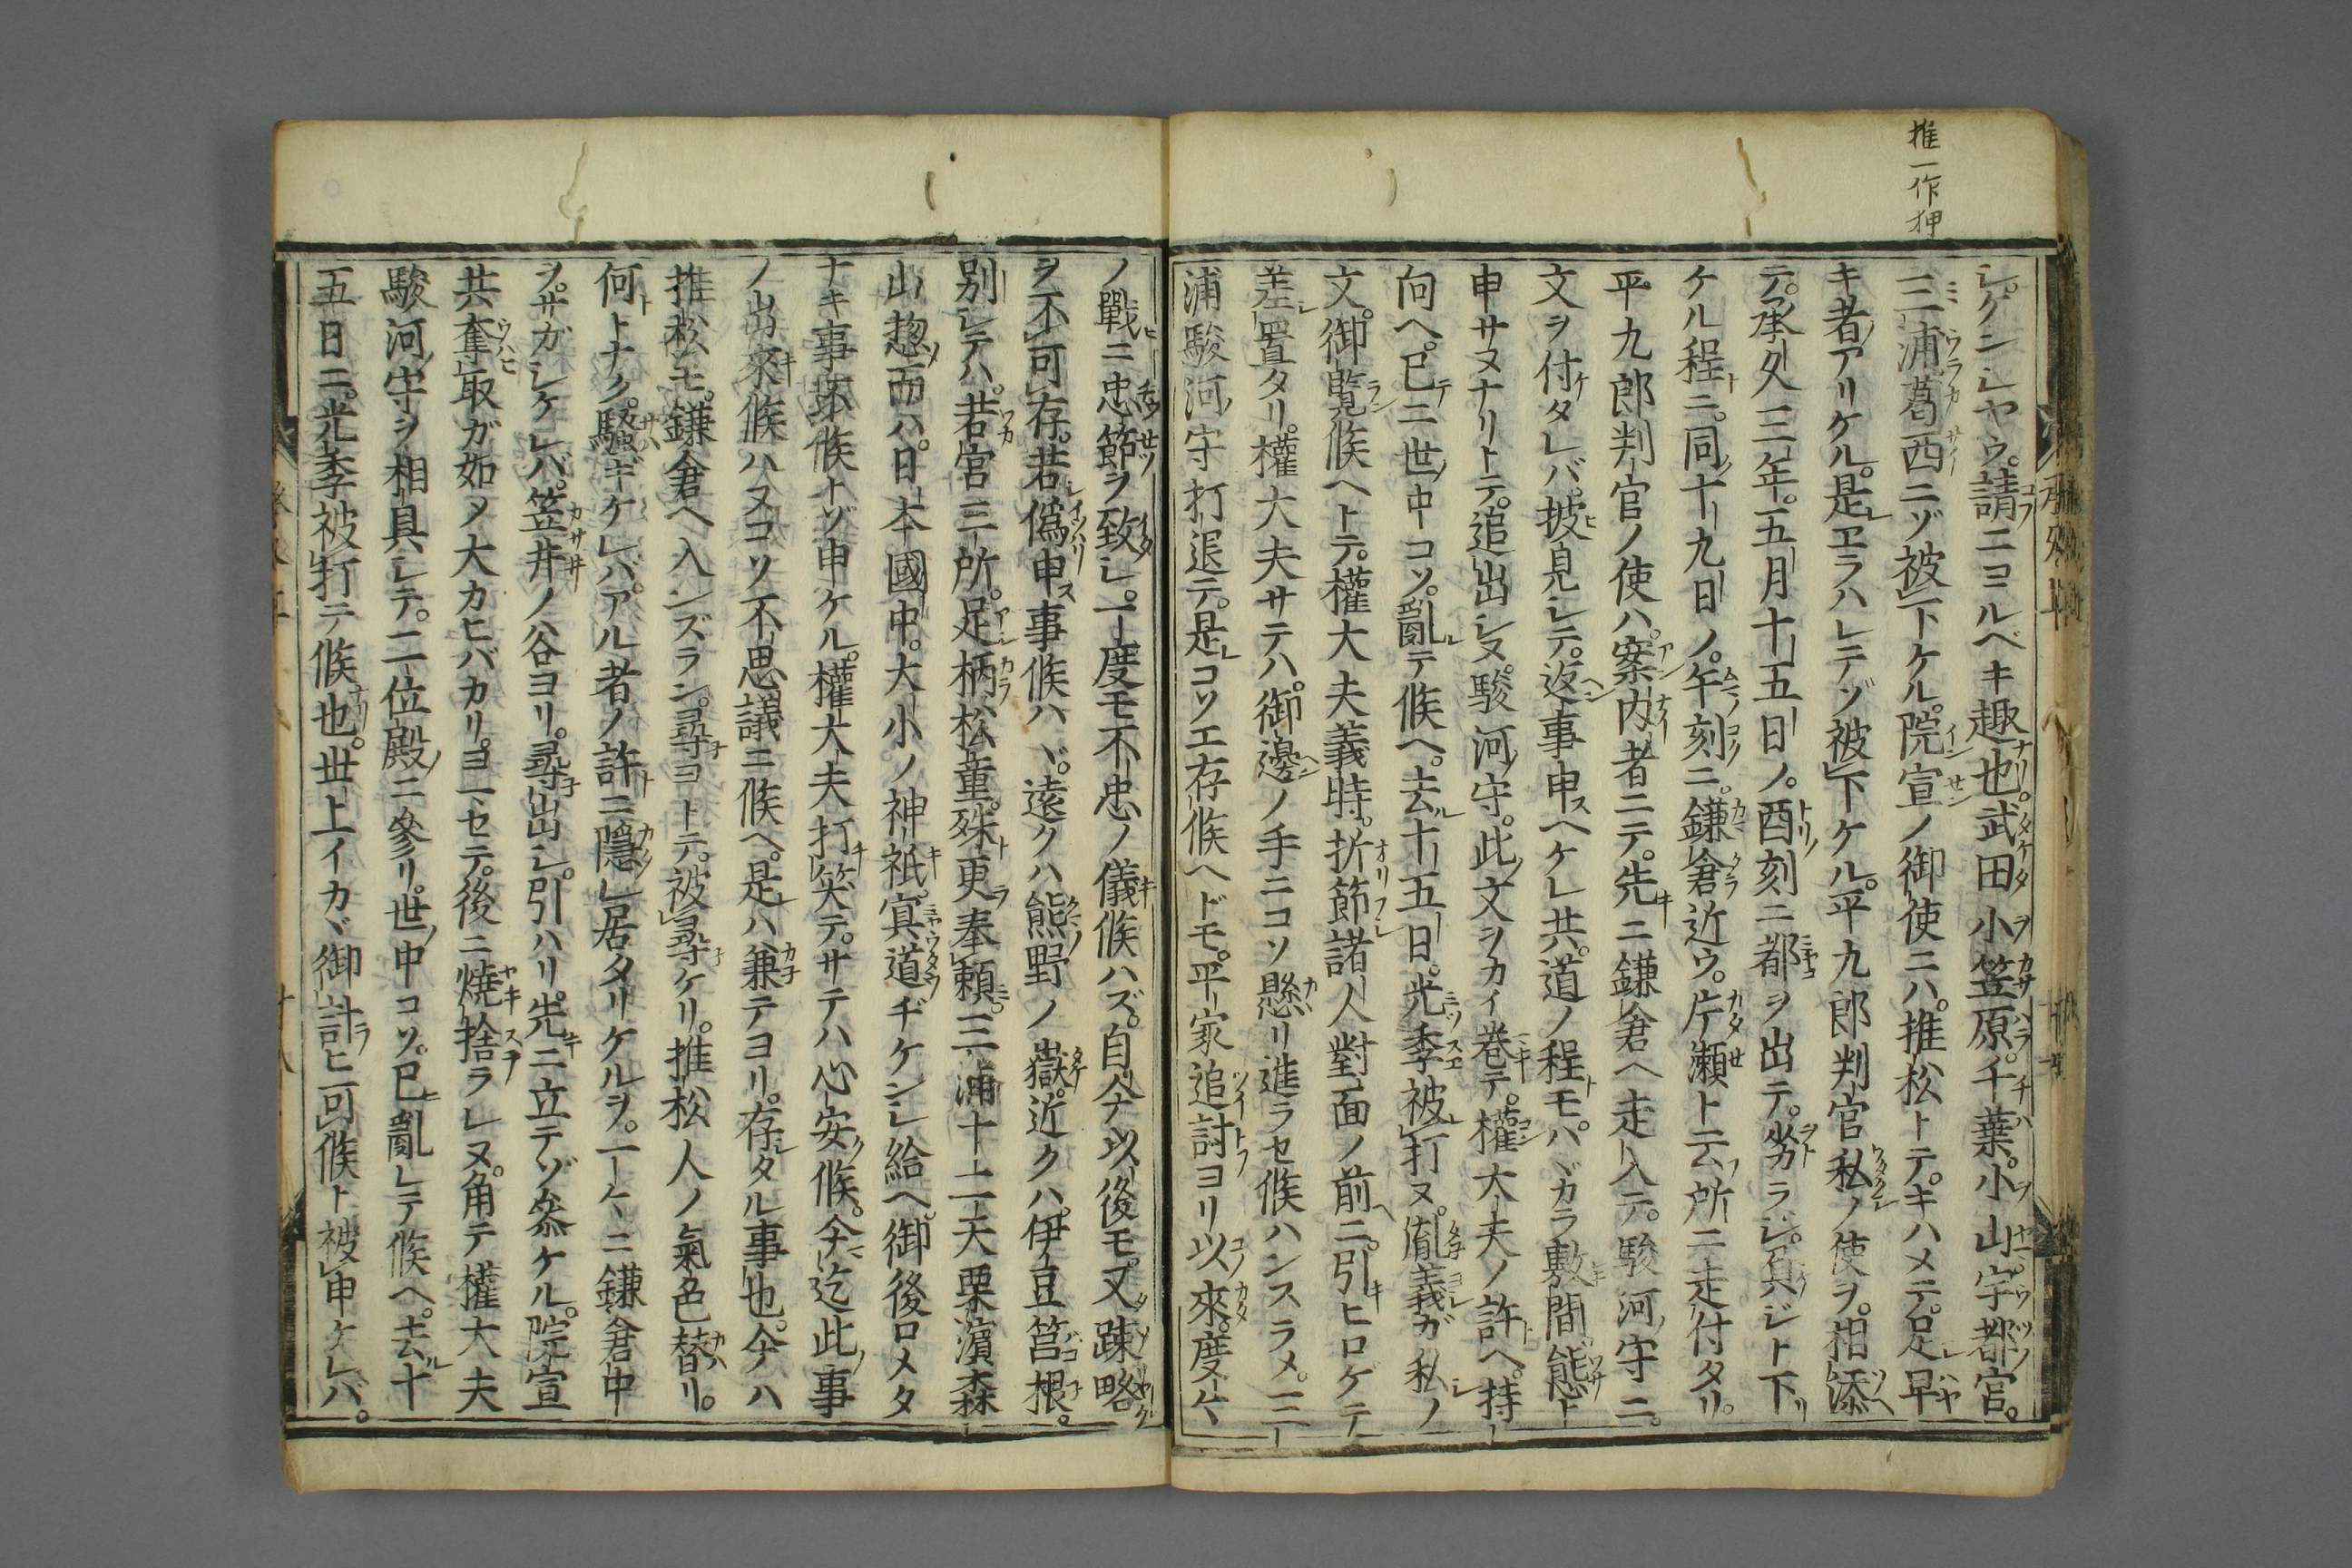 推一作押
シ。ケンレヤウ。請ニヨルベキ趣也。武田小笠原。千葉。小山。宇都宮。
三浦葛西ニゾ被下ケル。院宣ノ御使ニハ。推松トテ。キハメテ。足早
キ者アリケル。是エラハレテゾ被下ケル。平九郎判官私ノ使ヲ。相添
テ。承久三年。五月十五日ノ。酉刻ニ都ヲ出テ。劣ラジ。負ジト下
ケル程ニ。同十九日ノ。午刻ニ。鎌倉近ウ。片瀬ト云所ニ走付タリ。
平九郎判官ノ使ハ。案内者ニテ。先ニ鎌倉ヘ走入テ。駿河守ニ。
文ヲ付タレバ。披見シテ。返事申ヘケレ共。道ノ程モ。バヾカラ敷間態ト
申サヌナリトテ。追出シヌ。駿河守。此文ヲカイ巻テ。權大夫ノ許ヘ。持
向ヘ。已ニ世中コソ。亂テ候ヘ。去十五日。光季被打ヌ。胤義ガ私ノ
文。御覽候ヘトテ。權大夫義時。折節諸人對面ノ前ニ。引ヒロゲテ
差置タリ。權大夫サテハ。御邊ノ手ニコソ懸リ進ラセ候ハンスラメ。三
浦駿河守打退テ。是コソエ存候ヘドモ。平家追討ヨリ以來。度々
ノ戰ニ忠節ヲ致シ。一度モ不忠ノ儀候ハズ。自今以後モ。又踈略
ヲ不可存。若僞申事候ハヾ。遠クハ熊野ノ嶽。近クハ。伊豆筥根。
別シテハ。若宮三所。足柄。松童。殊更奉頼三浦十二天栗濱森
山惣而ハ。日本國中。大小ノ神祇。冥道ヂケンレ給ヘ。御後ロメタ
ナキ事不候トゾ申ケル。權大夫打笑テ。サテハ心安候。今迄此事
ノ出來候ハヌコソ不思議ニ候ヘ。是ハ兼テヨリ。存タル事也。今ハ
推松モ。鎌倉ヘ入ンズラン。尋ヨトテ。被尋ケリ。推松人ノ氣色替リ。
何トナク。騒ギケレバ。アル者ノ許ニ隱レ居タリケルヲ。一々ニ鎌倉中
ヲ。サガシケレバ。笠井ノ谷ヨリ。尋出シ。引ハリ。先ニ立テゾ參ケル。院宣
共奪取ガ如メ大カヒバカリ。ヨマセテ。後ニ焼捨ラレヌ。角テ權大夫
駿河守ヲ相具シテ。二位殿ニ參リ。世中コソ。已亂レテ候ヘ。去十
五日ニ。光季被打テ候也。世上イカヾ御計ヒ可候ト被申ケレバ。